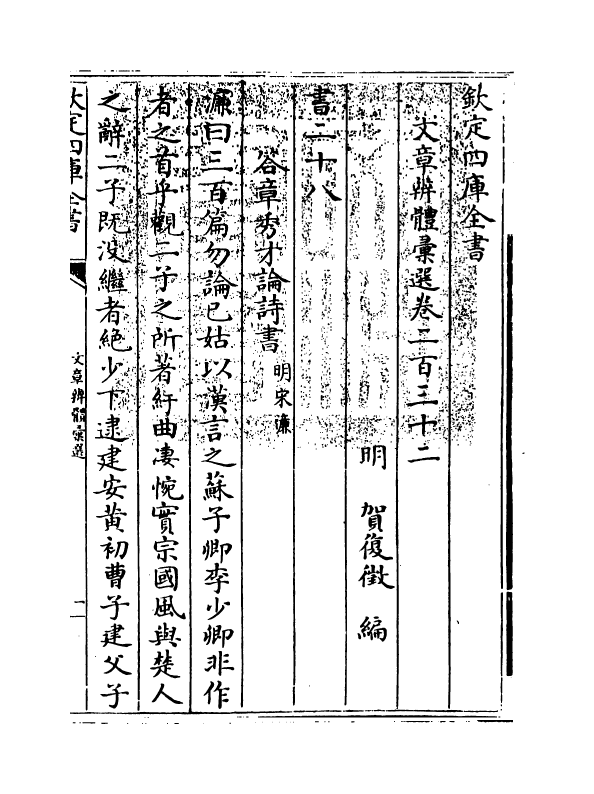 欽定四庫全書
文章辨體彙選卷二百三十二
明 賀復徵 編
書二十八
答章秀才論詩書 明宋濂
濂曰三百篇勿論已姑以漢言之蘇子卿李少卿非作
者之首乎觀二子之所著紆曲凄惋實宗國風與楚人
之辭二子既没繼者絶少下逮建安黄初曹子建父子
欽定四庫全書
文章辨體彙選